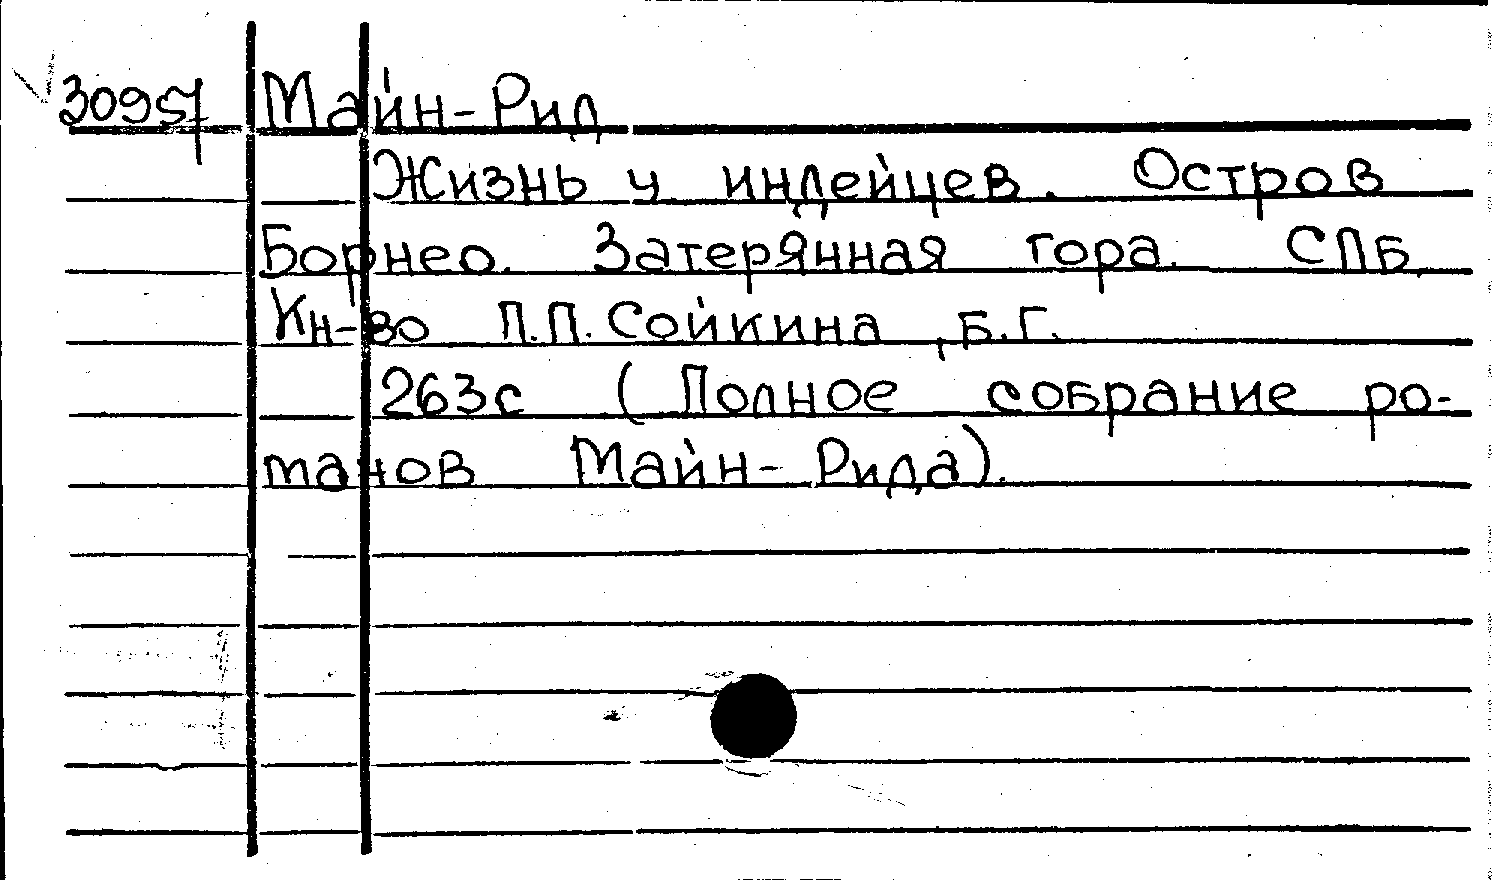 30957 Майн-Рид
Жизнь у индейцев. Остров
Борнео. Затерянная гора. СПБ.
Кн-во П.П. Сойкина, Б.Г.
263с (Полное собрание ро-
манов Майн-Рида).